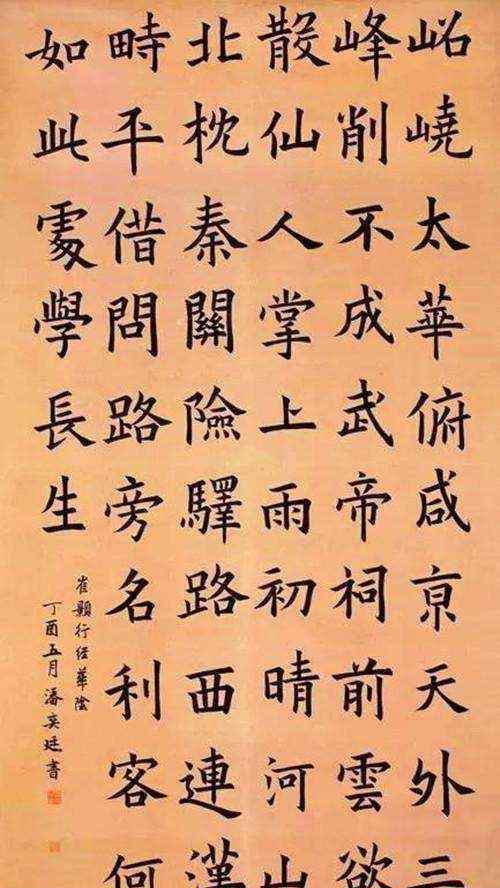 岹嶢太華俯咸亰天外三
峰削不成武帝祠前雲欲
散仙人掌上雨初晴河山
北枕秦關險驛路西連漢
畤平借問路旁名利客何
如此處學長生
崔顥行經華陰
丁酉五月潘奕廷書